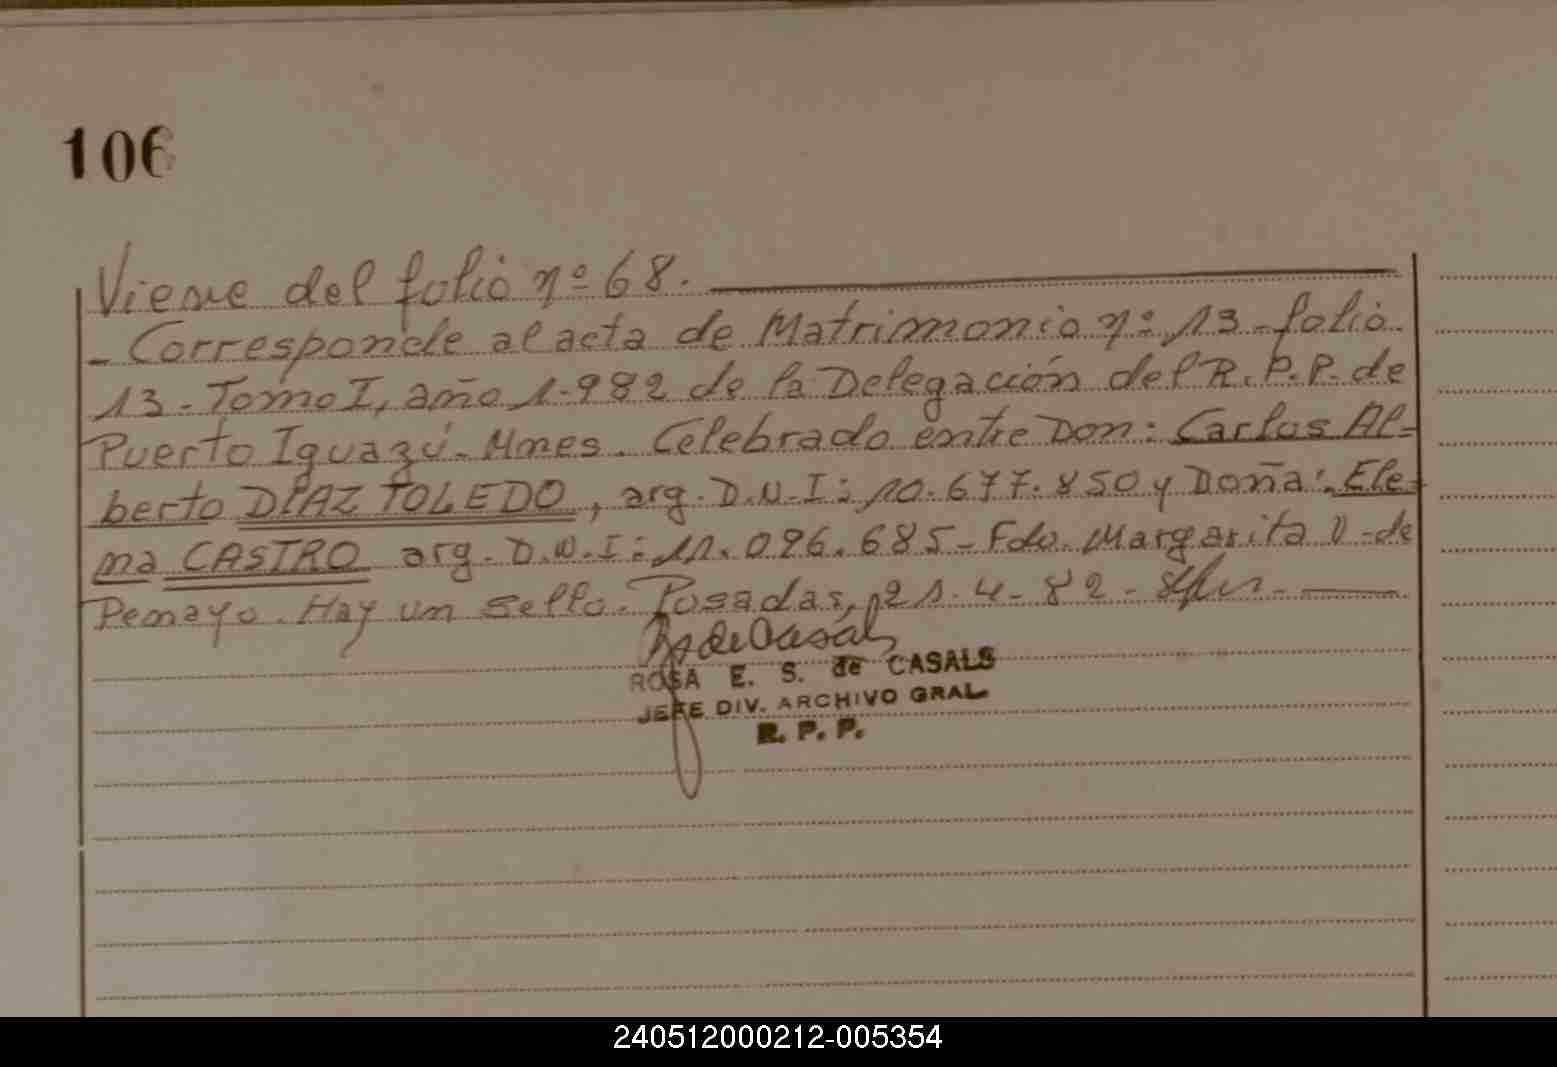 106
Viene del folio nº 68.
- Corresponde al acta de Matrimonio nº 13 - folio
13 - Tomo I, año 1.982 de la Delegación del R.P.P. de
Puerto Iguazú - Mnes. Celebrado entre Don: Carlos Al-
berto DIAZ TOLEDO, arg. D.N.I: 10.677.850 y Doña: Ele-
na CASTRO arg. D.N.I: 11.096.685 - Fdo. Margarita V. de
Penayo. Hay un sello. Posadas, 21.4.82 -
ROSA E. S. de CASALS
JEFE DIV. ARCHIVO GRAL
R. P. P.
240512000212-005354